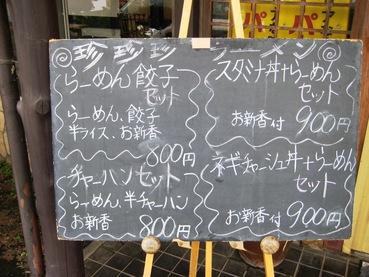 珍 珍 珍
ラーメン
らーめん餃子
セット
らーめん、餃子
半ライス、お新香
800円
チャーハンセット
らーめん、半チャーハン
お新香
800円
スタミナ丼+らーめん
セット
お新香付 900円
ネギチャーシュ丼+らーめん
セット
お新香付 900円